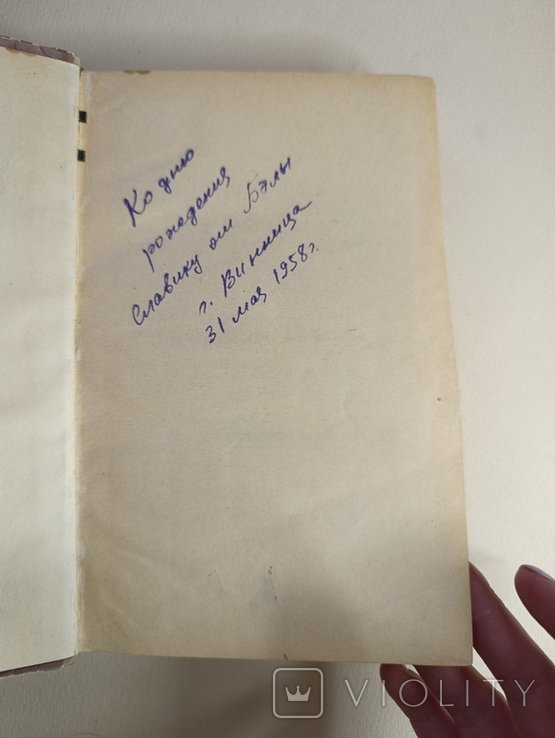 Ко дню
рождения
Славику от Бэлы
г. Винница
31 мая 1958г.
VIOLITY